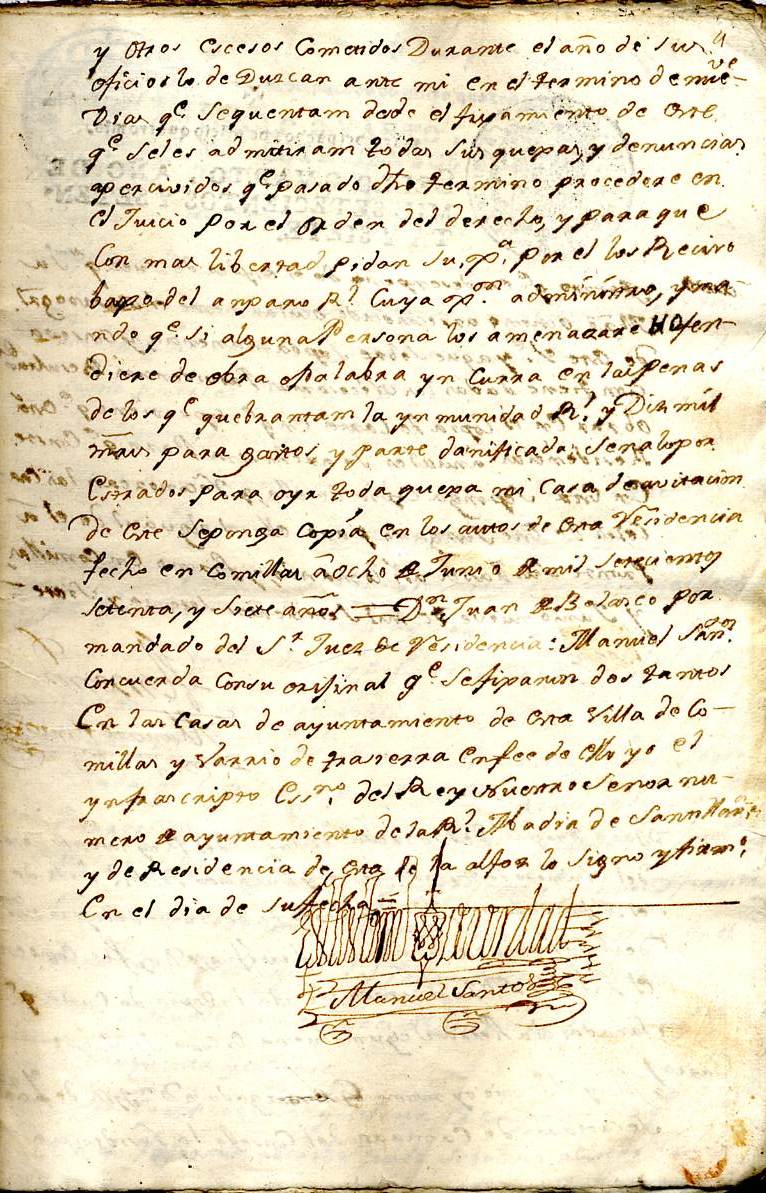 y Otros escesos Cometidos Durante el año de sus
oficios lo deduzcan ante mi en el termino de nueve
Dias qe. Sequentam desde el fixamiento de este
qe. seles admitiram todas sus quexas, y denuncias
apercividos qe. pasado dho termino procedere en
el Juicio por el orden del derecho, y para que
Con mas libertad pidan su por el los Recivo
baxo del anparo Rl. Cuya
ndo qe. si alguna Persona los amenazare HOfen-
diere de obra opalabra yn Curra en las Penas
de los qe. quebrantam la ynmunidad Rl. y Diez mil
mrs para gastos y parte danificada: Senalo por
Estrados para oyr toda quexa mi Casa de avitacion
de este Seponga Copia en los autos de esta Residencia
fecho en Comillas â Ocho de Junio de mil setecientos
setenta, y Siete años = Dn. Juan de Belasco por
mandado del Sr. Juez de Residencia: Manuel Santos
Concuerda Consu orixinal qe. Sefixaron dos tantos
En las Casas de ayuntamiento de esta Villa de Co-
millas y Varrio de trasierra enfee de ello yo el
ynfrascripto Essno. del Rey Nuestro Señor nu-
mero de ayuntamiento de la Rl. Abadia de
y de Residencia de esta de la alfoz lo Signo y firmo
En el dia de su fecha =
Manuel Santos